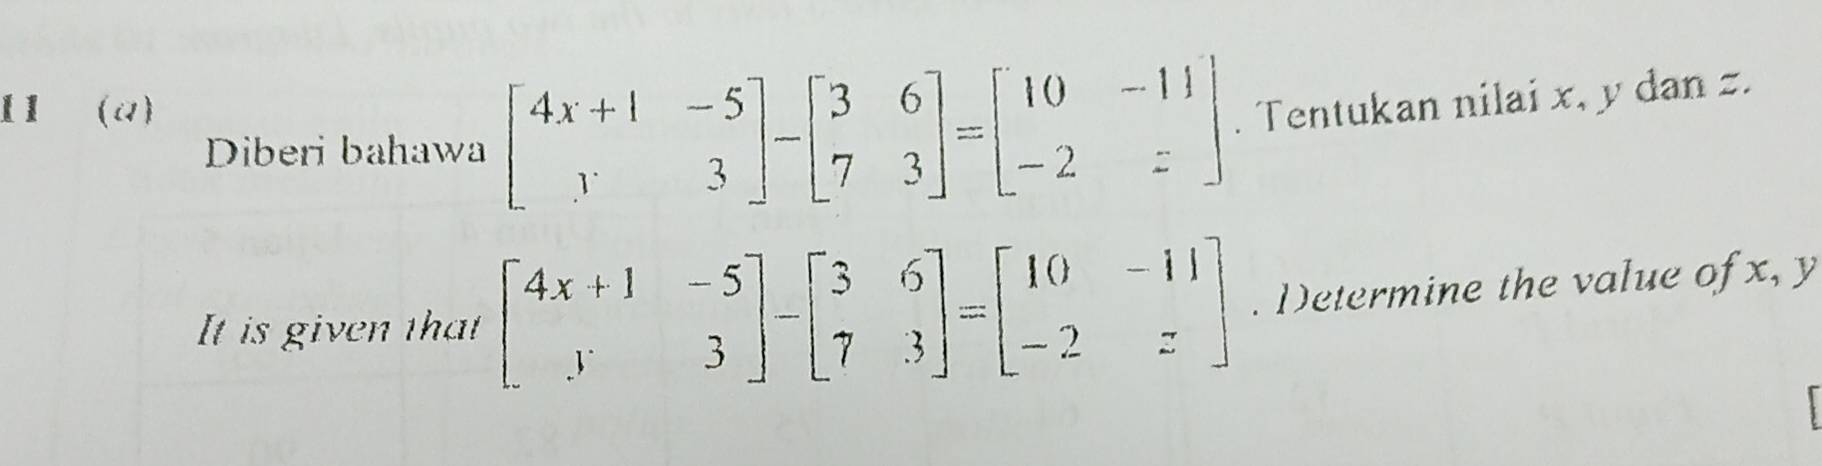 11 (a) Diberi bahawa [4x + 1 -5; y 3] - [3 6; 7 3] = [10 -11; -2 z]. Tentukan nilai x, y dan z.
It is given that [4x + 1 -5; y 3] - [3 6; 7 3] = [10 -11; -2 z]. Determine the value of x, y
[